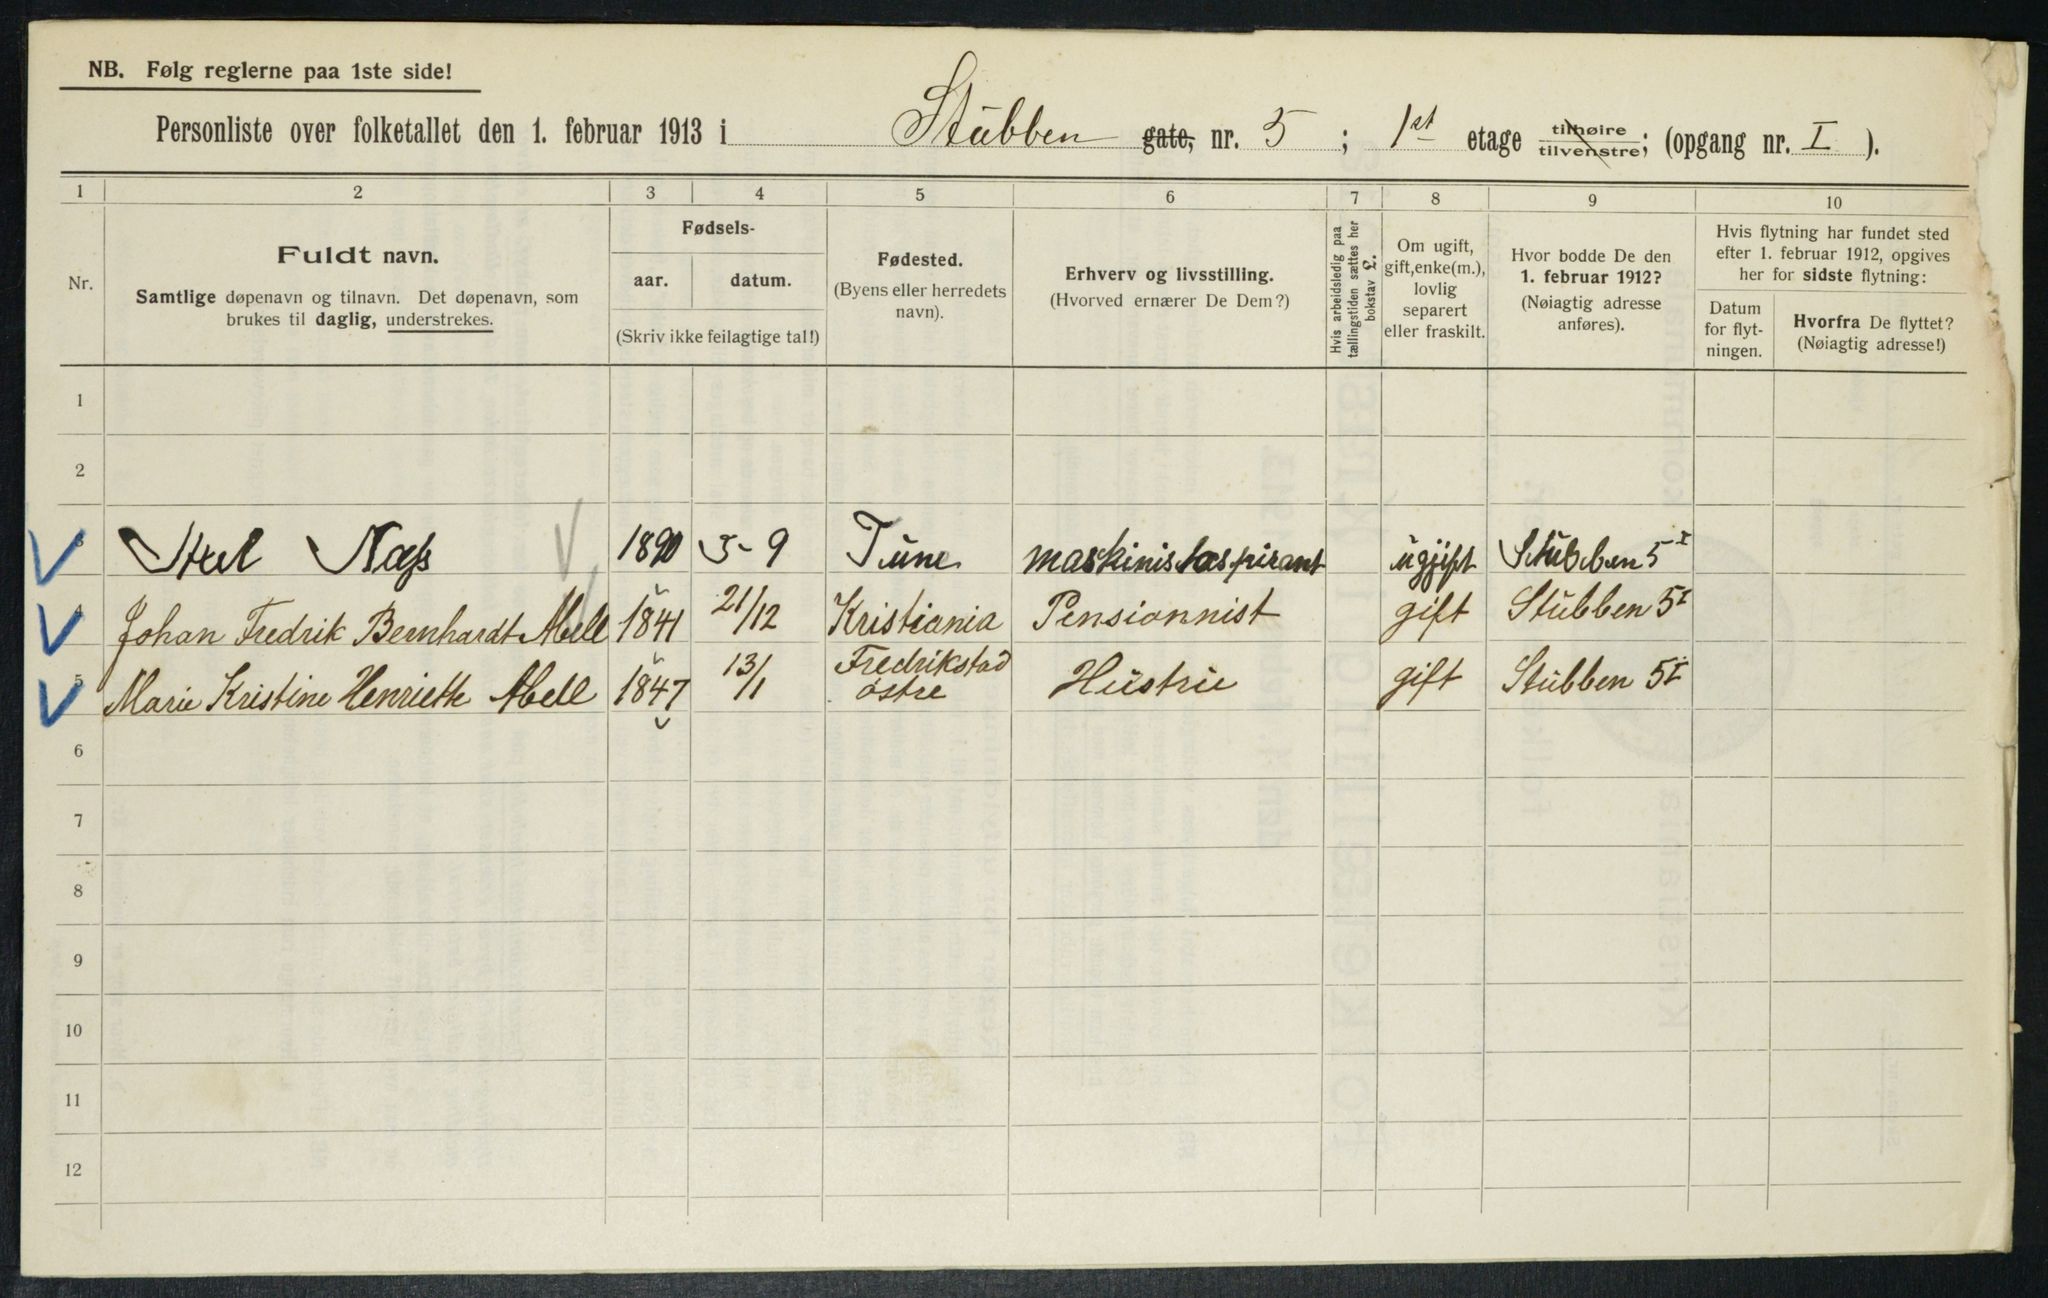 NB. Følg reglerne paa 1ste side!
Personliste over folketallet den 1. februar 1913 i Stubben gate, nr. 5 ; 1st etage tilhøire tilvenstre; (opgang nr. I ).
1 2 3 4 5 6 7 8 9 10
Nr.
Fuldt navn.
Samtlige døpenavn og tilnavn. Det døpenavn, som
brukes til daglig, understrekes.
Fødsels-
aar. datum.
(Skriv ikke feilagtige tal!)
Fødested.
(Byens eller herredets
navn).
Erhverv og livsstilling.
(Hvorved ernærer De Dem?)
Hvis arbeidsledig paa
tællingstiden sættes her
bokstav L.
Om ugift,
gift, enke(m.),
lovlig
separert
eller fraskilt.
Hvor bodde De den
1. februar 1912?
(Nøiagtig adresse
anføres).
Hvis flytning har fundet sted
efter 1. februar 1912, opgives
her for sidste flytning:
Datum
for flyt-
ningen.
Hvorfra De flyttet?
(Nøiagtig adresse!)
1
2
3 Axel Næss 1890 5-9 Tune maskinistaspirant ugift Stubben 5 I
4 Johan Fredrik Bernhardt Abell 1841 21/12 Kristiania Pensionnist gift Stubben 5 I
5 Marie Kristine Henriette Abell 1847 13/1 Fredrikstad østre Hustru gift Stubben 5 I
6
7
8
9
10
11
12